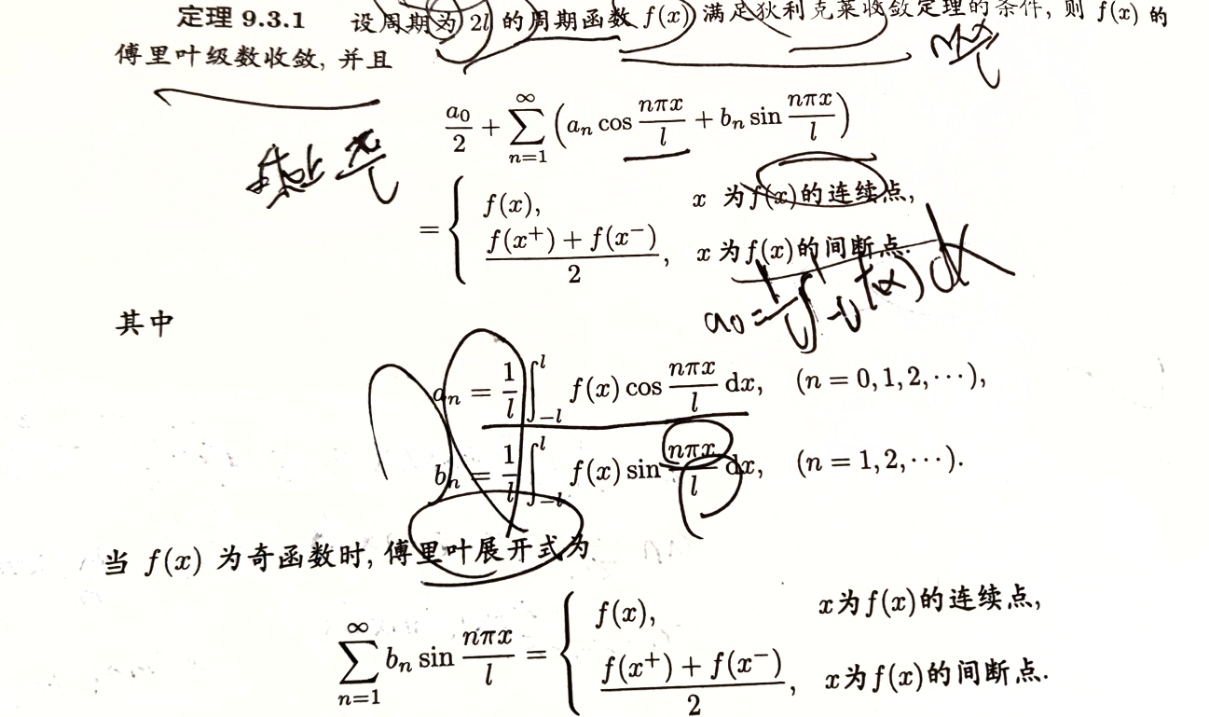 定理 9.3.1 设周期为 2l 的周期函数 f(x) 满足狄利克莱收敛定理的条件, 则 f(x) 的
傅里叶级数收敛, 并且
a₀/2 + ∑_{n=1}^{∞} (aₙ cos nπx/l + bₙ sin nπx/l)
= { f(x), x 为f(x)的连续点,
(f(x⁺) + f(x⁻))/2, x 为f(x)的间断点.
a₀ = 1/l ∫_{-l}^{l} f(x) dx
其中
aₙ = 1/l ∫_{-l}^{l} f(x) cos nπx/l dx, (n = 0, 1, 2, ⋯),
bₙ = 1/l ∫_{-l}^{l} f(x) sin nπx/l dx, (n = 1, 2, ⋯).
当 f(x) 为奇函数时, 傅里叶展开式为
∑_{n=1}^{∞} bₙ sin nπx/l = { f(x), x为f(x)的连续点,
(f(x⁺) + f(x⁻))/2, x为f(x)的间断点.